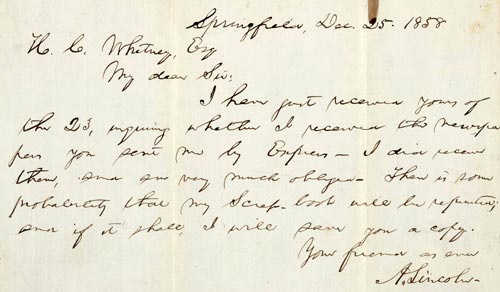 Springfield, Dec. 25. 1858
H. C. Whitney, Esq
My dear Sir:
I have just received yours of
the 23, inquiring whether I received the newspa
pers you sent me by Express— I did receive
them, and am very much obliged— There is some
probability that my Scrap-book will be reprinted;
and if it shall, I will save you a copy.
Your friend as ever
A. Lincoln—